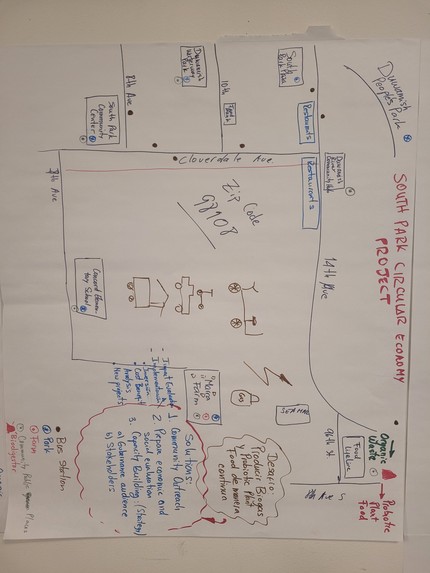 SOUTH PARK CIRCULAR ECONOMY
PROJECT
Duwamish
People's Park
South
Park Plaza
Restaurants
Duwamish
Waterway
Park
10th
8th Ave
South Park
Community
Center
Cloverdale Ave
Restaurants
Duwamish
River
8th Ave
Zip Code
98108
14th Ave
Concord Elemen
tary School
Marra
Farm
SEA MAR
96th St
Food
Lifeline
8th Ave S
Organic
Waste
Probiotic
Plant
Food
Desafio
Producir Biogas
y Probiotic Plant
Food de manera
continua
Solutions:
1 Community Outreach
2. Prepare economic and
social evaluation
3. Capacity Building: (Strategy)
a) Gubernance audience
b) Stakeholders
Cost Benefit
Analysis
Bus Station
Park
Farm
Community Public Places
Biodigester